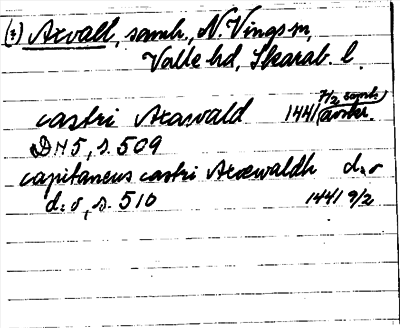 (2) Axvall, samh., N. Vings sn,
Valle hd, Skarab. l.
castri Axawald 1441 7/2 samh avskr.
DN 5, s. 509
capitaneus castri Axewaldh d:o
d:o, s. 510 1441 9/2